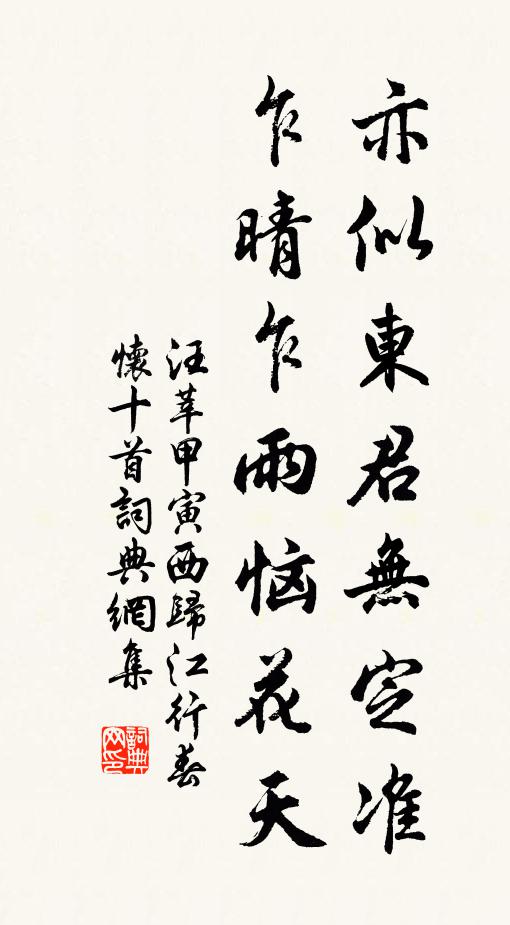 亦似東君無定准
乍晴乍雨惱花天
汪莘甲寅西歸江行春
懷十首詞典網集
詞典网印